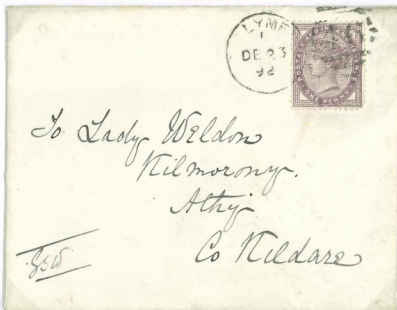 LYME
1
DE 23
92
ONE PENNY
To Lady Weldon
Kilmorony
Athy
Co Kildare